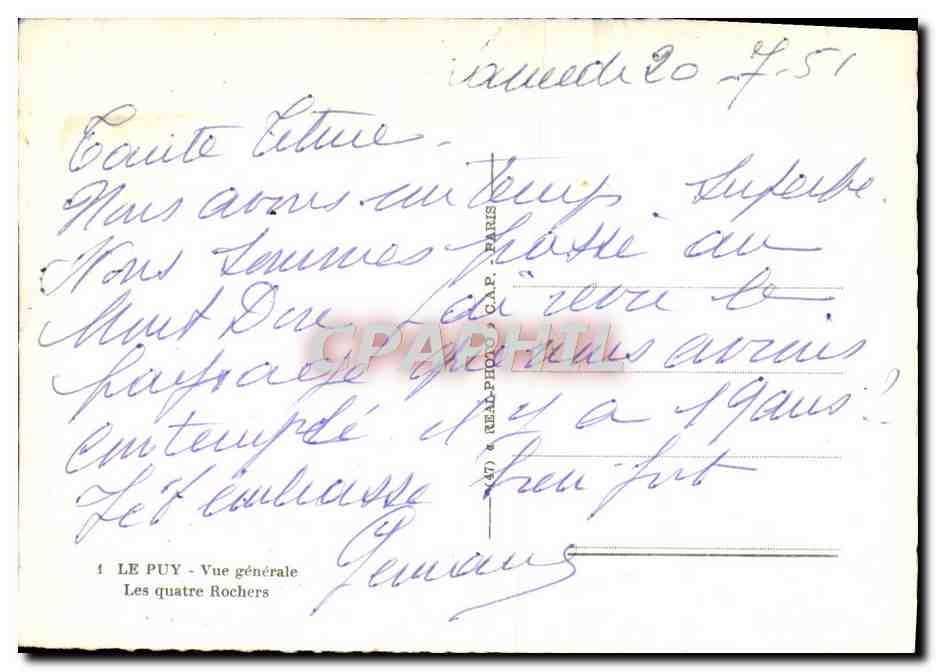 Samedi 20-7-51
Tante Titine.
Nous avons un temps superbe.
Nous sommes passé au
Mont Dore j'ai revu le
paysage que nous avions
contemplé il y a 19 ans!
Je t'embrasse bien fort
Germaine
(47) REAL-PHOTO C.A.P. - PARIS
CPARPHIL
1 LE PUY - Vue générale
Les quatre Rochers